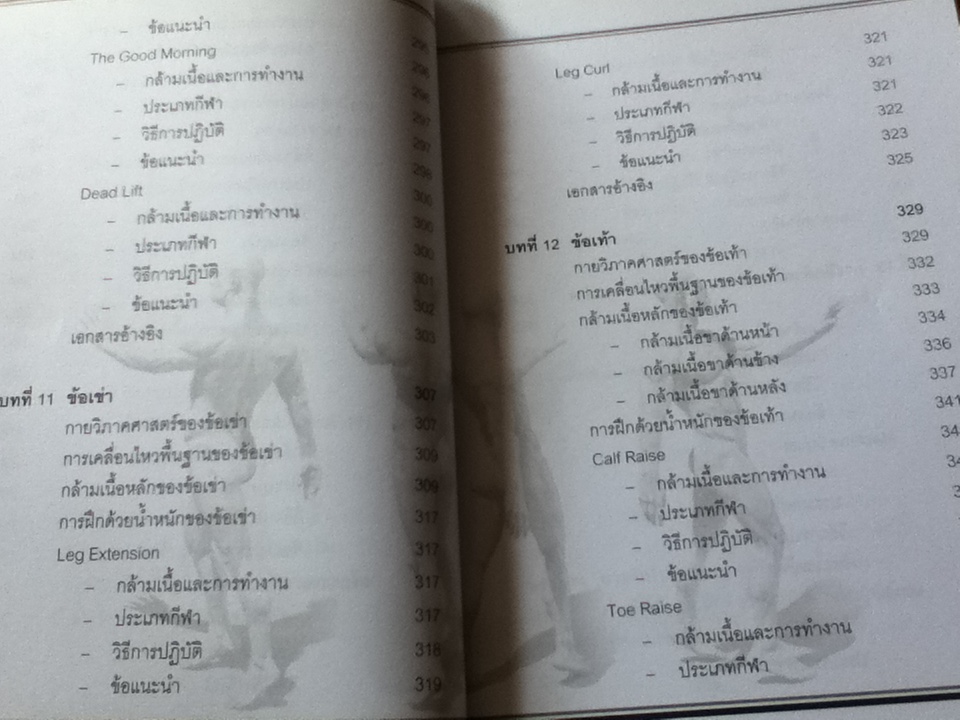 – ข้อแนะนำ 295
The Good Morning 296
– กล้ามเนื้อและการทำงาน 296
– ประเภทกีฬา 297
– วิธีการปฏิบัติ 297
– ข้อแนะนำ 298
Dead Lift 300
– กล้ามเนื้อและการทำงาน 300
– ประเภทกีฬา 300
– วิธีการปฏิบัติ 301
– ข้อแนะนำ 302
เอกสารอ้างอิง 303
บทที่ 11 ข้อเข่า 307
กายวิภาคศาสตร์ของข้อเข่า 307
การเคลื่อนไหวพื้นฐานของข้อเข่า 309
กล้ามเนื้อหลักของข้อเข่า 309
การฝึกด้วยน้ำหนักของข้อเข่า 317
Leg Extension 317
– กล้ามเนื้อและการทำงาน 317
– ประเภทกีฬา 317
– วิธีการปฏิบัติ 318
– ข้อแนะนำ 319
Leg Curl 321
– กล้ามเนื้อและการทำงาน 321
– ประเภทกีฬา 321
– วิธีการปฏิบัติ 322
– ข้อแนะนำ 323
เอกสารอ้างอิง 325
บทที่ 12 ข้อเท้า 329
กายวิภาคศาสตร์ของข้อเท้า 329
การเคลื่อนไหวพื้นฐานของข้อเท้า 332
กล้ามเนื้อหลักของข้อเท้า 333
– กล้ามเนื้อขาด้านหน้า 334
– กล้ามเนื้อขาด้านข้าง 336
– กล้ามเนื้อขาด้านหลัง 337
การฝึกด้วยน้ำหนักของข้อเท้า 341
Calf Raise
– กล้ามเนื้อและการทำงาน
– ประเภทกีฬา
– วิธีการปฏิบัติ
– ข้อแนะนำ
Toe Raise
– กล้ามเนื้อและการทำงาน
– ประเภทกีฬา